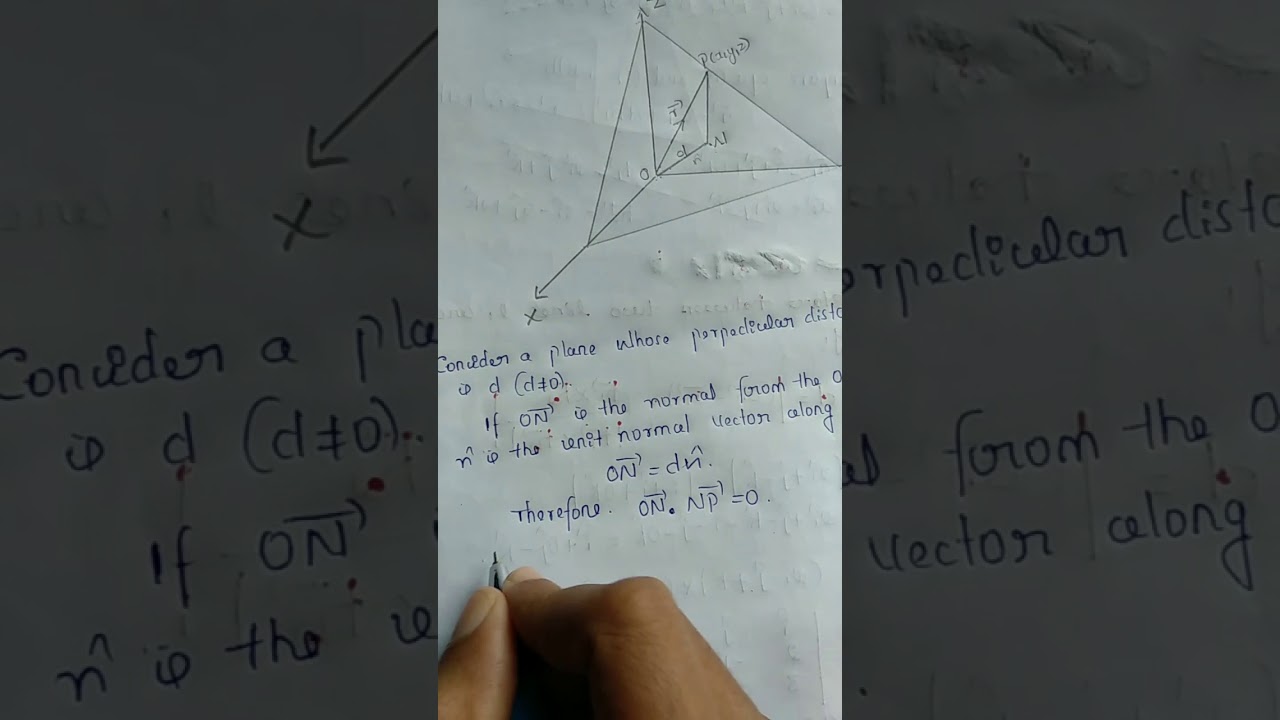 Z
P(x,y,z)
r
d
N
n
O
X
Consider a plane whose perpedicular dista
is d (d≠0).
If ON⃗ is the normal from the O
n̂ is the unit normal vector along
ON⃗ = dn̂.
Therefore. ON⃗. NP⃗ = 0.